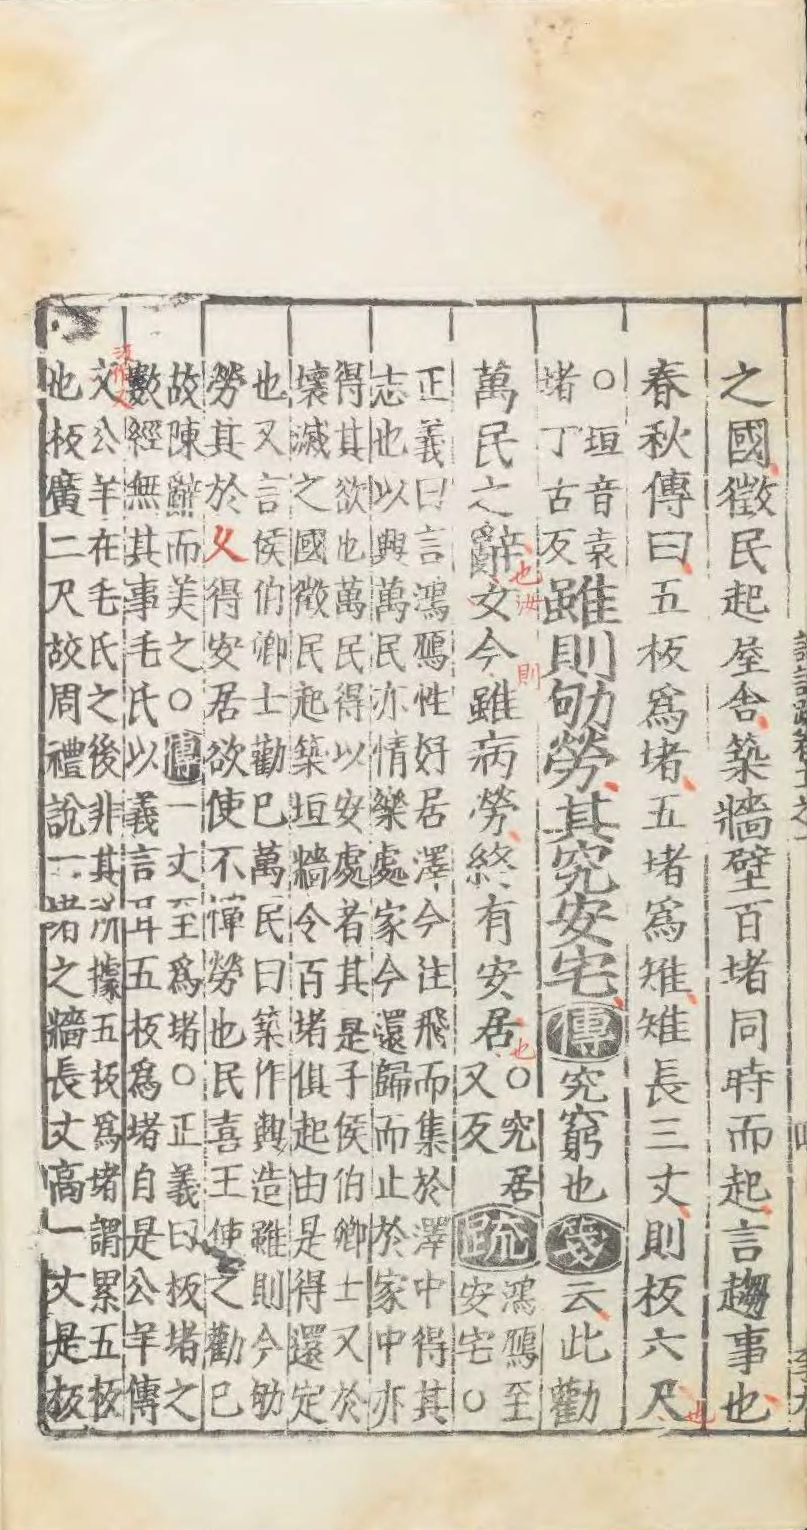 之國徵民起屋舍築牆壁百堵同時而起言趨事也
春秋傳曰五板爲堵五堵爲雉雉長三丈則板六尺
也
○垣音袁
堵丁古反
雖則劬勞其究安宅傳究窮也箋云此勸
萬民之辭女今雖病勞終有安居
也汝
則
也
○究居
又反
疏
鴻鴈至
安宅○
正義曰言鴻鴈性好居澤今注飛而集於澤中得其
志也以興萬民亦情樂處家今還歸而止於家中亦
得其欲也萬民得以安處者其是予侯伯卿士又於
壞滅之國徵民起築垣牆令百堵俱起由是得還定
也又言侯伯卿士勸巳萬民曰築作興造雖則今劬
勞其於乂得安居欲使不憚勞也民喜王使之勸巳
故陳辭而美之○傳一丈至爲堵○正義曰板堵之
數經無其事毛氏以義言耳五板爲堵自是公羊傳
文公羊在毛氏之後非其所據五板爲堵謂累五板
也板廣二尺故周禮說一堵之牆長丈高一丈是板